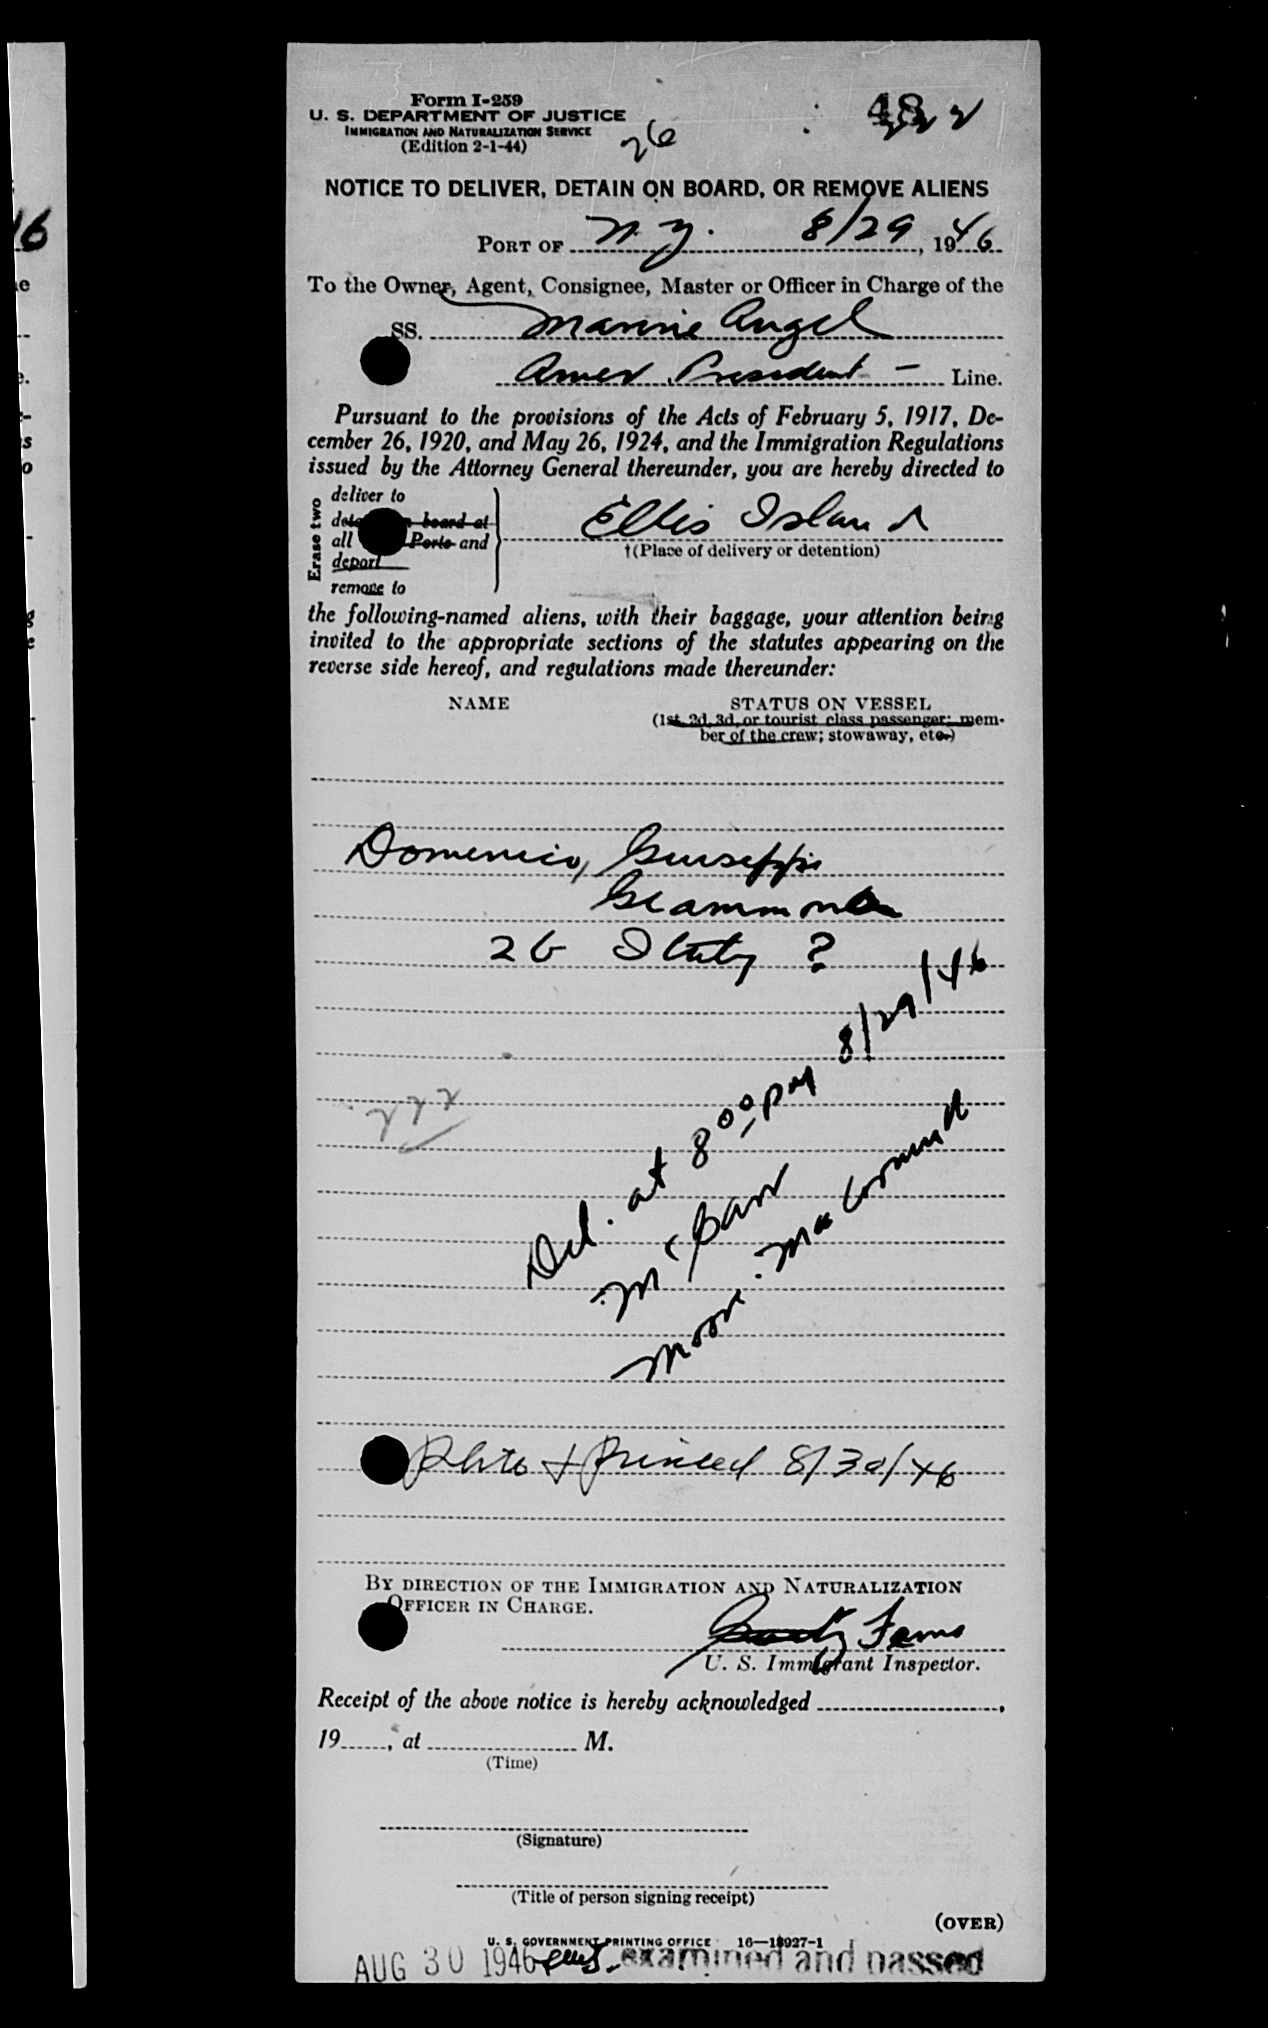 Form I-259
U. S. DEPARTMENT OF JUSTICE
IMMIGRATION AND NATURALIZATION SERVICE
(Edition 2-1-44)
26
NOTICE TO DELIVER, DETAIN ON BOARD, OR REMOVE ALIENS
PORT OF N. Y. 8/29, 1946
To the Owner, Agent, Consignee, Master or Officer in Charge of the
SS. Marine Angel
Amer President - Line.
Pursuant to the provisions of the Acts of February 5, 1917, De-
cember 26, 1920, and May 26, 1924, and the Immigration Regulations
issued by the Attorney General thereunder, you are hereby directed to
Erase two
deliver to
board at
all Ports and
deport
remove to
Ellis Island
†(Place of delivery or detention)
the following-named aliens, with their baggage, your attention being
invited to the appropriate sections of the statutes appearing on the
reverse side hereof, and regulations made thereunder:
NAME
STATUS ON VESSEL
(1st, 2d, 3d, or tourist class passenger; mem-
ber of the crew; stowaway, etc.)
Domenico, Guiseppi
26 Italy ?
Del. at 8 00 PM 8/29/46
222
Photo + Printed 8/30/46
BY DIRECTION OF THE IMMIGRATION AND NATURALIZATION
OFFICER IN CHARGE.
U. S. Immigrant Inspector.
Receipt of the above notice is hereby acknowledged ,
19 , at M.
(Time)
(Signature)
(Title of person signing receipt)
(OVER)
U. S. GOVERNMENT PRINTING OFFICE 16—18927-1
AUG 30 1946 examined and passed